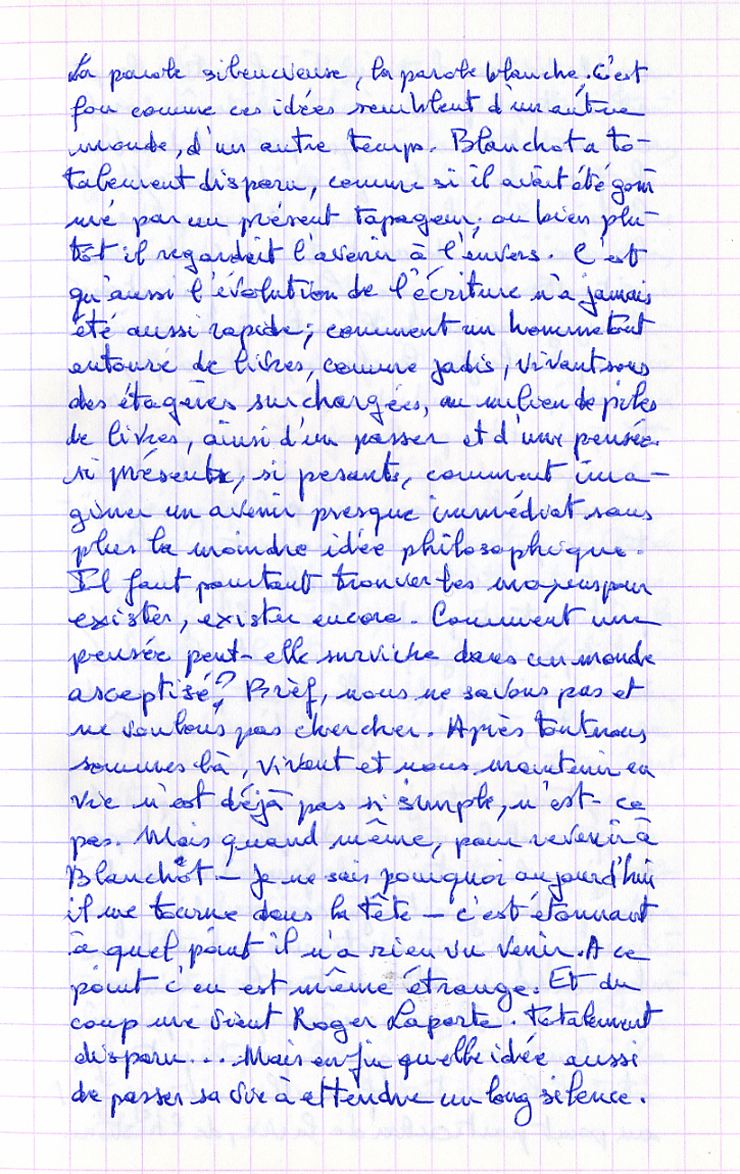 La parole silencieuse, la parole blanche. C'est
fou comme ces idées semblent d'un autre
monde, d'un autre temps. Blanchot a to-
talement disparu, comme si il avait été gom
mé par un présent tapageur; ou bien plu-
tôt il regardait l'avenir à l'envers. C'est
qu'aussi l'évolution de l'écriture n'a jamais
été aussi rapide; comment un homme tout
entouré de livres, comme jadis, vivant sous
des étagères surchargées, au milieu de piles
de livres, ainsi d'un passer et d'une pensée
si présente, si pesante, comment ima-
giner un avenir presque immédiat sans
plus la moindre idée philosophique.
Il faut pourtant trouver les moyens pour
exister, exister encore. Comment une
pensée peut-elle survivre dans un monde
asceptisé? Brèf, nous ne savons pas et
ne voulons pas chercher. Après tout nous
sommes là, vivant et nous maintenir en
vie n'est déjà pas si simple, n'est-ce
pas. Mais quand même, pour revenir à
Blanchot – je ne sais pourquoi aujourd'hui
il me tourne dans la tête – c'est étonnant
à quel point il n'a rien vu venir. A ce
point c'en est même étrange. Et du
coup me vient Roger Laporte. Totalement
disparu... Mais enfin quelle idée aussi
de passer sa vie à attendre un long silence.